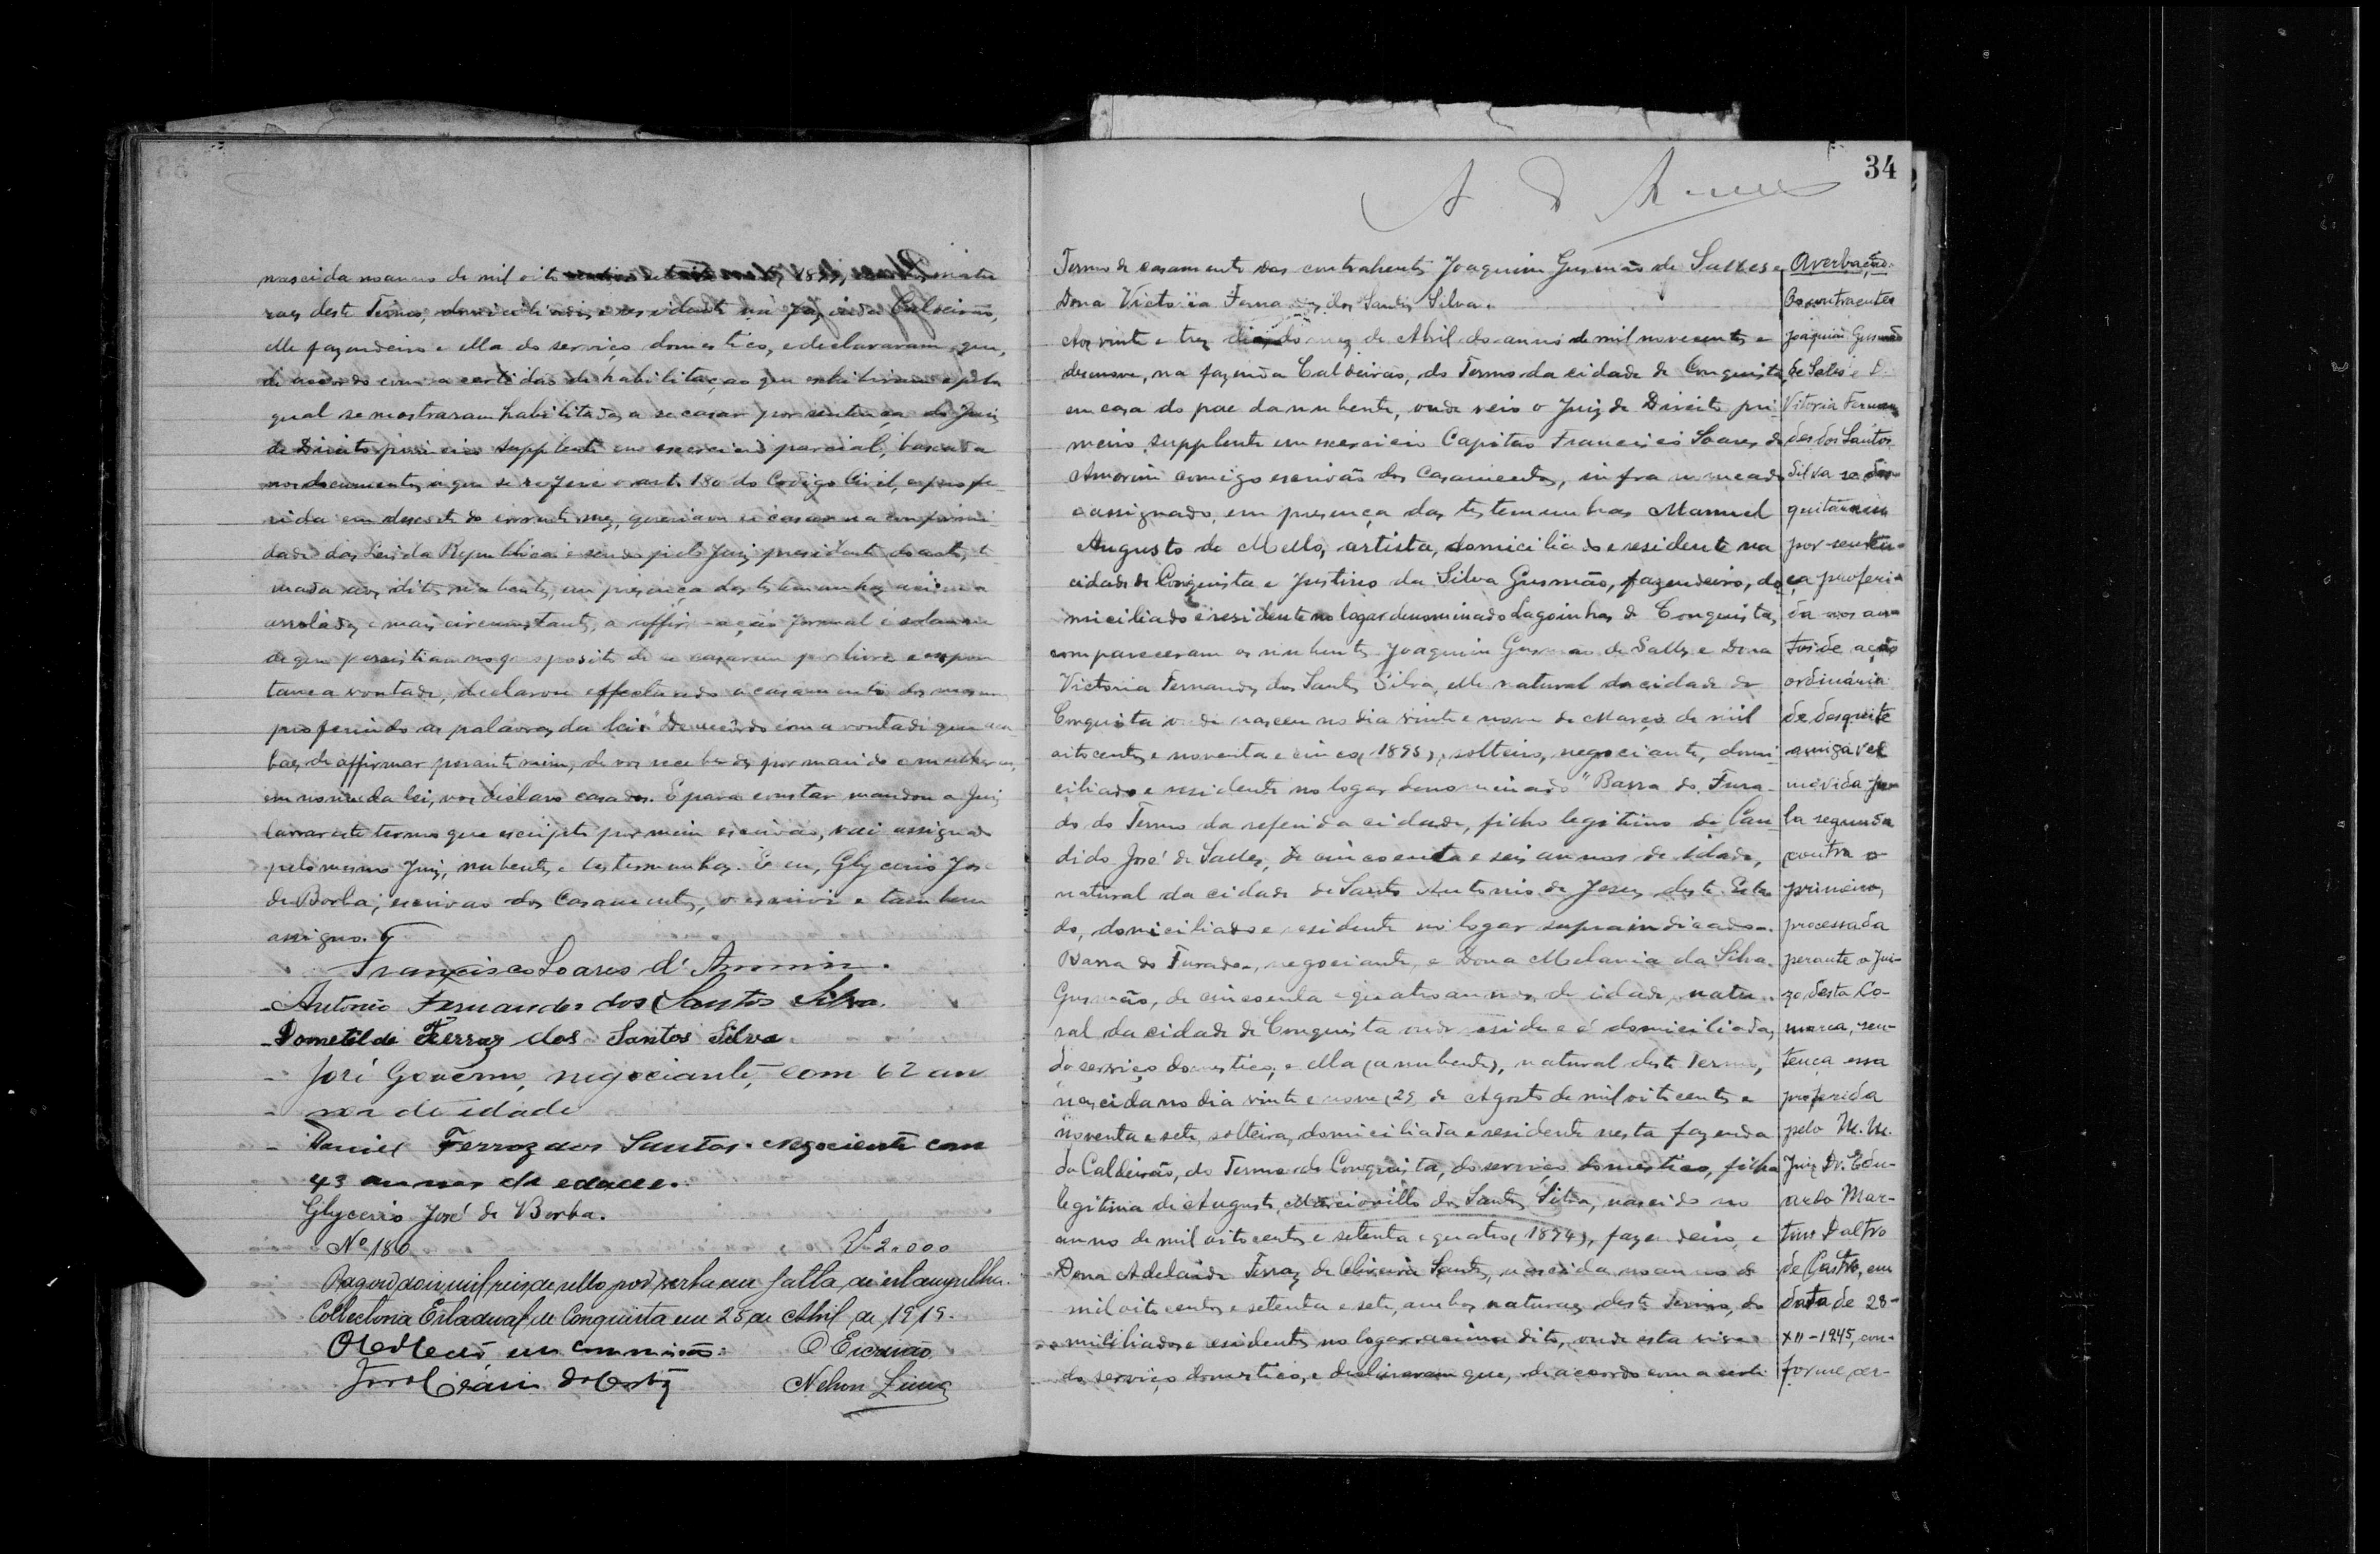 nascida no anno de mil oito
raes deste Termo, domiciliados e residentes na fazenda Caldeirão,
elle fazendeiro e ella do serviço domestico, e declararam que,
de accordo com a certidão de habilitação que exhibiram e pela
qual se mostraram habilitados a se casar por sentença do Juiz
de Direito primeiro supplente em exercicio parcial, baseada
nos documentos a que se refere o art. 180 do Codigo Civil, e profe-
rida em desesete do corrente mez, queriam se casar na conformi-
dade das Leis da Republica e sendo pelo Juiz presidente do acto, to
mada aos ditos nubentes, em presença das testemunhas acima
arroladas e mais circumstantes, a affirmação formal e solemne
de que persistiam no proposito de se casarem por livre e espon
tanea vontade, declarou effectuado o casamento dos mesmos
proferindo as palavras da lei: "De accôrdo com a vontade que aca
baes de affirmar perante mim, de vos receberdes por marido e mulher, eu,
em nome da lei, vos declaro casados. E para constar mandou o Juiz
lavrar este termo que escripto por mim escrivão, vai assignado
pelo mesmo Juiz, nubentes e testemunhas. E eu, Glycerio José
de Borba, escrivão dos Casamentos, o escrevi e tambem
assigno.
Francisco Soares d'Amorim.
Antonio Fernandes dos Santos Silva.
Dometilde Ferraz dos Santos Silva
José Governo, negociante, com 62 an
nos de idade
Daniel Ferraz dos Santos. negociante com
43 annos de edade.
Glycerio José de Borba.
Nº 180 2.000
Pagou dois mil reis de sello por verba em falta de estampilha.
Collectoria Estadual de Conquista em 25 de Abril de 1919.
O Collector em commissão: O Escrivão
Nelson Lima
34
Termo de casamento dos contrahentes Joaquim Gusmão de Salles e
Dona Victoria Fernandes dos Santos Silva.
Aos vinte e trez dias do mez de Abril do anno de mil novecentos e
desenove, na fazenda Caldeirão, do Termo da cidade de Conquista,
em casa do pae da nubente, onde veio o Juiz de Direito pri-
meiro supplente em exercicio Capitão Francisco Soares de
Amorim comigo escrivão dos Casamentos, infra nomeado
e assignado, em presença das testemunhas Manuel
Augusto de Mello, artista, domiciliado e residente na
cidade de Conquista e Justino da Silva Gusmão, fazendeiro, do
miciliado e residente no logar denominado Lagoinhas de Conquista,
compareceram os nubentes Joaquim Gusmão de Salles e Dona
Victoria Fernandes dos Santos Silva, elle natural da cidade de
Conquista onde nasceu no dia vinte e nove de Março de mil
oitocentos e noventa e cinco (1895), solteiro, negociante, domi-
ciliado e residente no logar denominado "Barra do Fura-
do do Termo da referida cidade, filho legitimo de Can-
dido José de Salles, de cincoenta e seis annos de idade,
natural da cidade de Santo Antonio de Jesus, deste Esta
do, domiciliado e residente no logar supraindicado
Barra do Furado, negociante, e Dona Melania da Silva
Gusmão, de cincoenta e quatro annos de idade, natu-
ral da cidade de Conquista onde reside e é domiciliada,
do serviço domestico, e ella (a nubente), natural deste Termo,
nascida no dia vinte e nove (29) de Agosto de mil oitocentos e
noventa e sete, solteira, domiciliada e residente nesta fazenda
do Caldeirão, do Termo de Conquista, do serviço domestico, filha
legitima de Augusto Marcionillo dos Santos Silva, nascido no
anno de mil oitocentos e setenta e quatro (1874), fazendeiro, e
Dona Adelaide Ferraz de Oliveira Santos, nascida no anno de
mil oitocentos e setenta e sete, ambos naturaes deste Termo, do
miciliados e residentes no logar acima dito, onde esta vive
do serviço domestico, e declararam que, de accordo com a certi
Averbação.
Os contraentes
Joaquim Gusmão
de Sales e D.
Vitoria Fernan
des dos Santos
Silva se des-
quitaram
por senten-
ça proferi-
da nos au-
tos de ação
ordinária
de desquite
amigavel
movida pe-
la segunda
contra o
primeiro,
processada
perante o Jui-
zo desta Co-
marca, sen-
tença essa
proferida
pelo M. M.
Juiz Dr. Edu-
ardo Mar-
tins Daltro
de Castro, em
data de 28-
XII-1945, con-
forme cer-